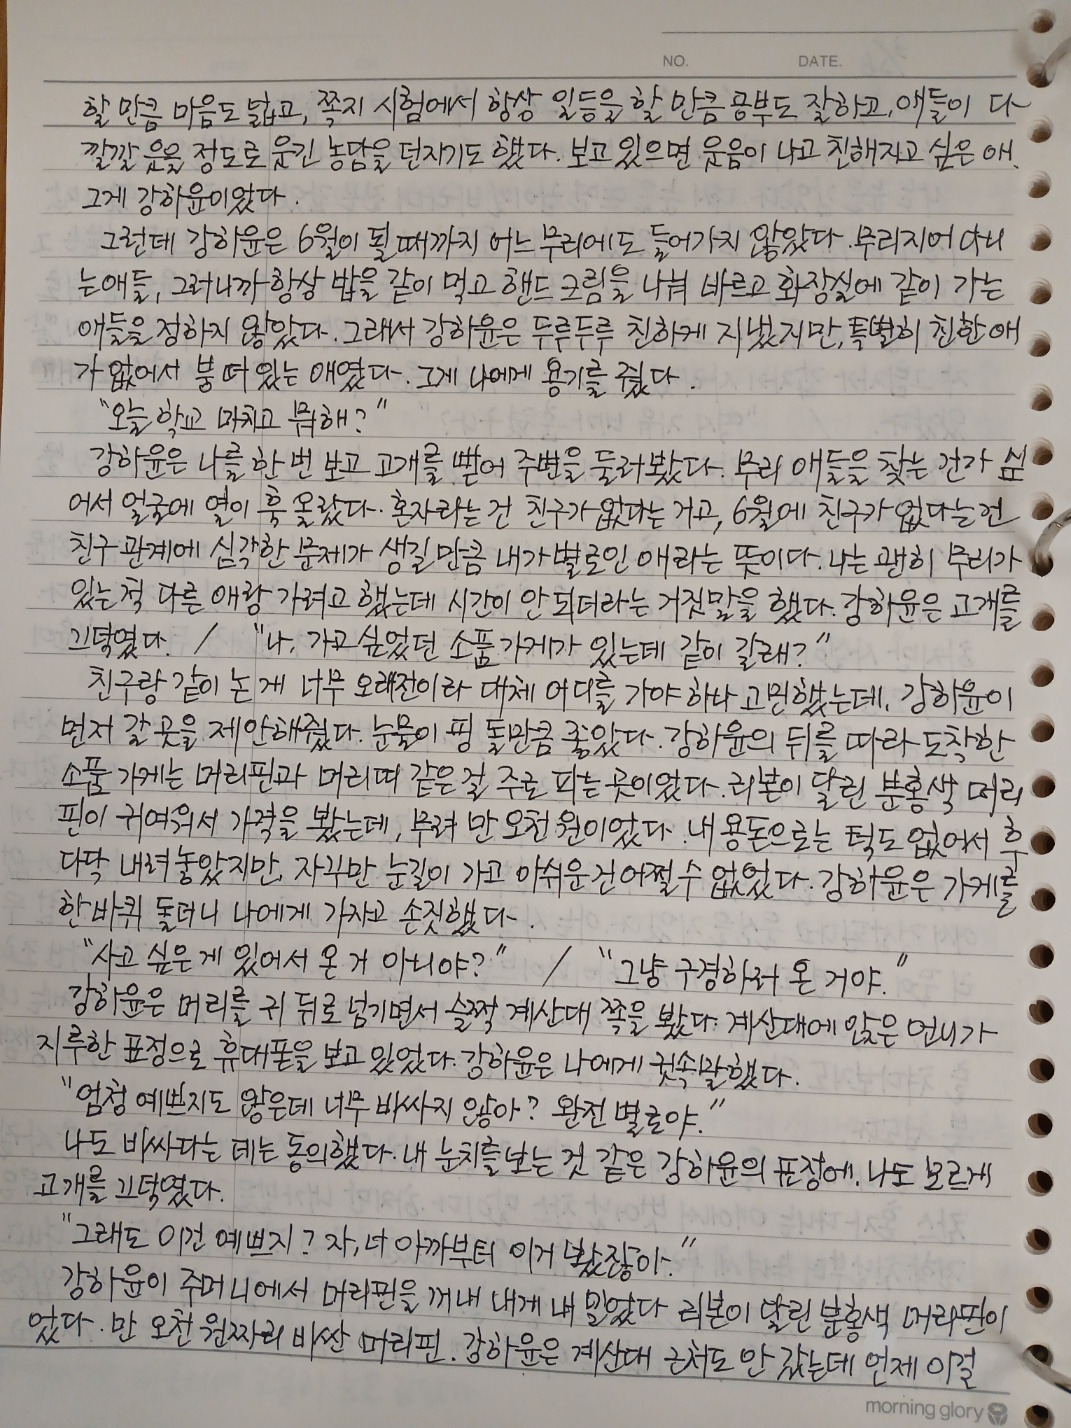 NO. DATE.
할 만큼 마음도 넓고, 쪽지 시험에서 항상 일등을 할 만큼 공부도 잘하고, 애들이 다
깔깔 웃을 정도로 웃긴 농담을 던지기도 했다. 보고 있으면 웃음이 나고 친해지고 싶은 애.
그게 강하윤이었다.
그런데 강하윤은 6월이 될 때까지 어느 무리에도 들어가지 않았다. 무리지어 다니
는 애들, 그러니까 항상 밥을 같이 먹고 핸드크림을 나눠 바르고 화장실에 같이 가는
애들을 정하지 않았다. 그래서 강하윤은 두루두루 친하게 지냈지만, 특별히 친한 애
가 없어서 붕 떠 있는 애였다. 그게 나에게 용기를 줬다.
"오늘 학교 마치고 뭐해?"
강하윤은 나를 한 번 보고 고개를 뻗어 주변을 둘러봤다. 무리 애들을 찾는 건가 싶
어서 얼굴에 열이 훅 올랐다. 혼자라는 건 친구가 없다는 거고, 6월에 친구가 없다는 건
친구 관계에 심각한 문제가 생길 만큼 내가 별로인 애라는 뜻이다. 나는 괜히 무리가
있는 척 다른 애랑 가려고 했는데 시간이 안 되더라는 거짓말을 했다. 강하윤은 고개를
끄덕였다. / "나, 가고 싶었던 소품 가게가 있는데 같이 갈래?"
친구랑 같이 논 게 너무 오래전이라 대체 어디를 가야 하나 고민했는데, 강하윤이
먼저 갈 곳을 제안해줬다. 눈물이 핑 돌만큼 좋았다. 강하윤의 뒤를 따라 도착한
소품 가게는 머리핀과 머리띠 같은 걸 주로 파는 곳이었다. 리본이 달린 분홍색 머리
핀이 귀여워서 가격을 봤는데, 무려 만 오천 원이었다. 내 용돈으로는 턱도 없어서 후
다닥 내려놓았지만, 자꾸만 눈길이 가고 아쉬운 건 어쩔 수 없었다. 강하윤은 가게를
한 바퀴 돌더니 나에게 가자고 손짓했다.
"사고 싶은 게 있어서 온 거 아니야?" / "그냥 구경하러 온 거야."
강하윤은 머리를 귀 뒤로 넘기면서 슬쩍 계산대 쪽을 봤다. 계산대에 앉은 언니가
지루한 표정으로 휴대폰을 보고 있었다. 강하윤은 나에게 귓속말했다.
"엄청 예쁘지도 않은데 너무 비싸지 않아? 완전 별로야."
나도 비싸다는 데는 동의했다. 내 눈치를 보는 것 같은 강하윤의 표정에, 나도 모르게
고개를 끄덕였다.
"그래도 이건 예쁘지? 자, 너 아까부터 이거 봤잖아."
강하윤이 주머니에서 머리핀을 꺼내 내게 내밀었다 리본이 달린 분홍색 머리핀이
었다. 만 오천 원짜리 비싼 머리핀. 강하윤은 계산대 근처도 안 갔는데 언제 이걸
morning glory